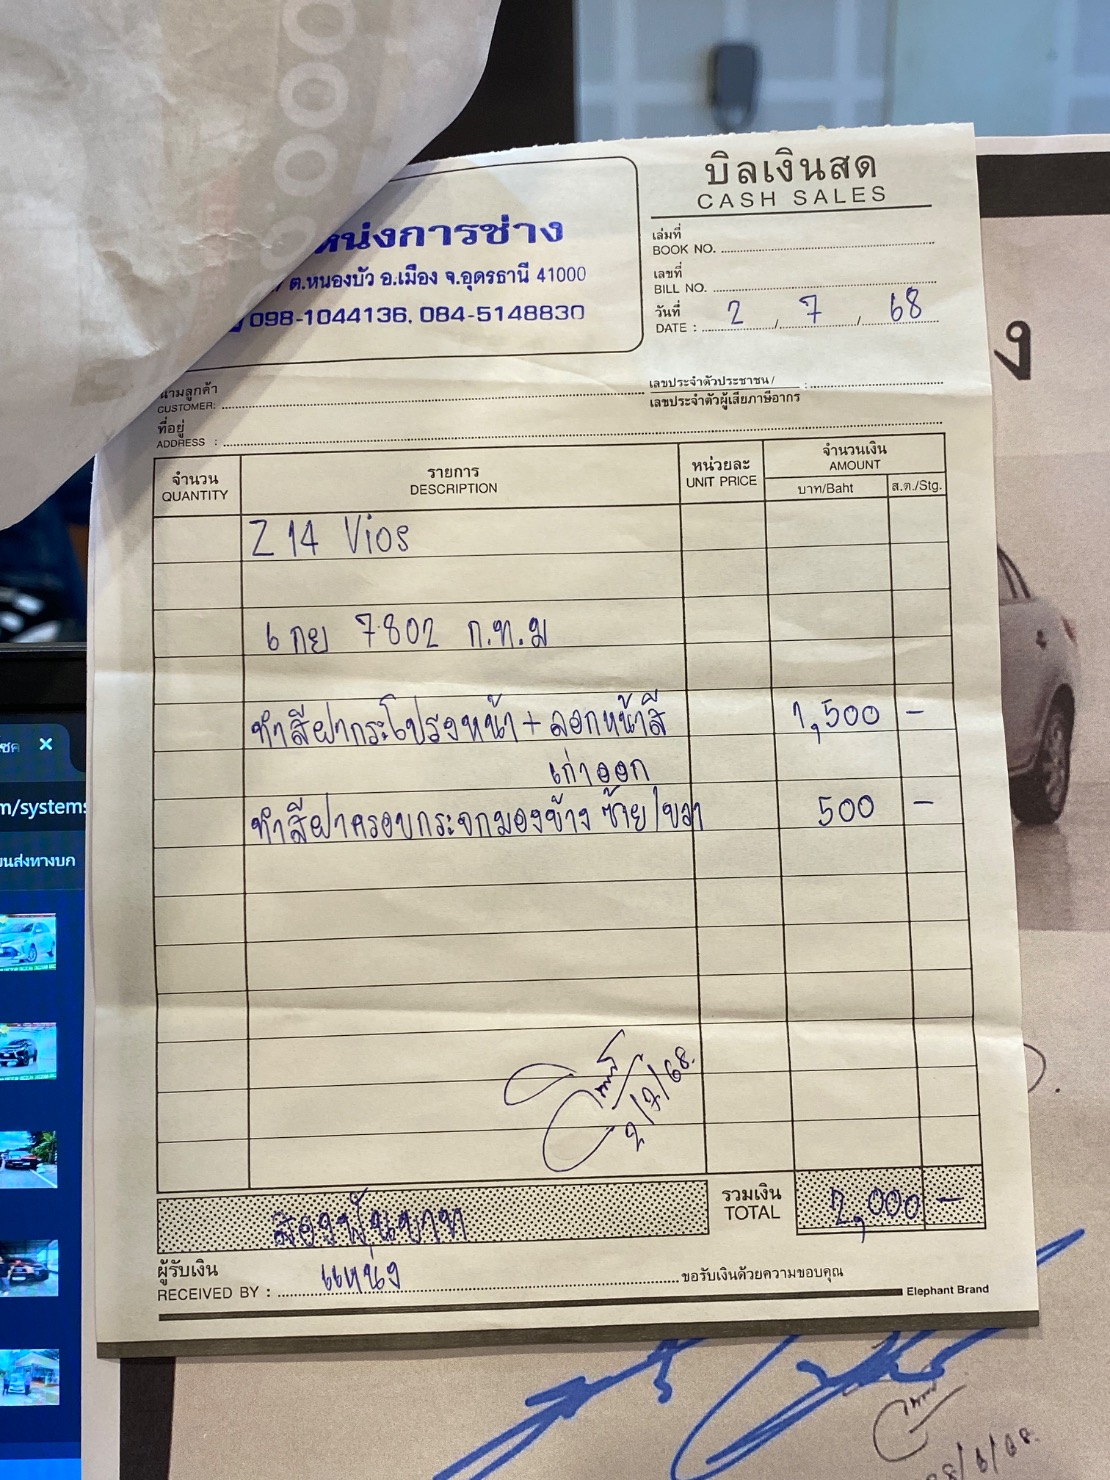 บิลเงินสด
CASH SALES
หน่งการช่าง
ต.หนองบัว อ.เมือง จ.อุดรธานี 41000
098-1044136, 084-5148830
เล่มที่
BOOK NO.
เลขที่
BILL NO.
วันที่
DATE : 2 / 7 / 68
นามลูกค้า
CUSTOMER:
เลขประจำตัวประชาชน/ :
เลขประจำตัวผู้เสียภาษีอากร
ที่อยู่
ADDRESS :
จำนวน
QUANTITY
รายการ
DESCRIPTION
หน่วยละ
UNIT PRICE
จำนวนเงิน
AMOUNT
บาท/Baht ส.ต./Stg.
Z 14 Vios
6 กย 7802 ก.ท.ม
ทำสีฝากระโปรงหน้า + ลอกหน้าสี 1,500 -
เก่าออก
ทำสีฝาครอบกระจกมองข้าง ซ้าย/ขวา 500 -
2/7/68.
สองพันบาท
รวมเงิน
TOTAL
2,000 -
ผู้รับเงิน
RECEIVED BY : แหน่ง
ขอรับเงินด้วยความขอบคุณ
Elephant Brand
ง
โชค ×
m/systems
ขนส่งทางบก